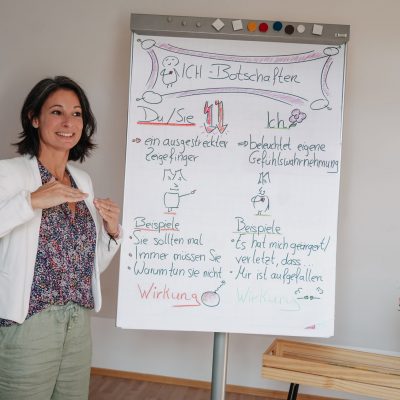 ICH-Botschaften
Du/Sie
Ich
→ ein ausgestreckter
Zeigefinger
→ beleuchtet eigene
Gefühlswahrnehmung
Beispiele
• Sie sollten mal
• Immer müssen Sie
• Warum tun sie nicht
Wirkung
Beispiele
• Es hat mich geärgert/
verletzt, dass...
• Mir ist aufgefallen
Wirkung